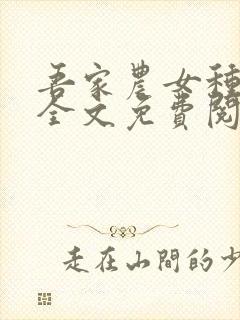 吾家農女種
全文免費閱
走在山間的少